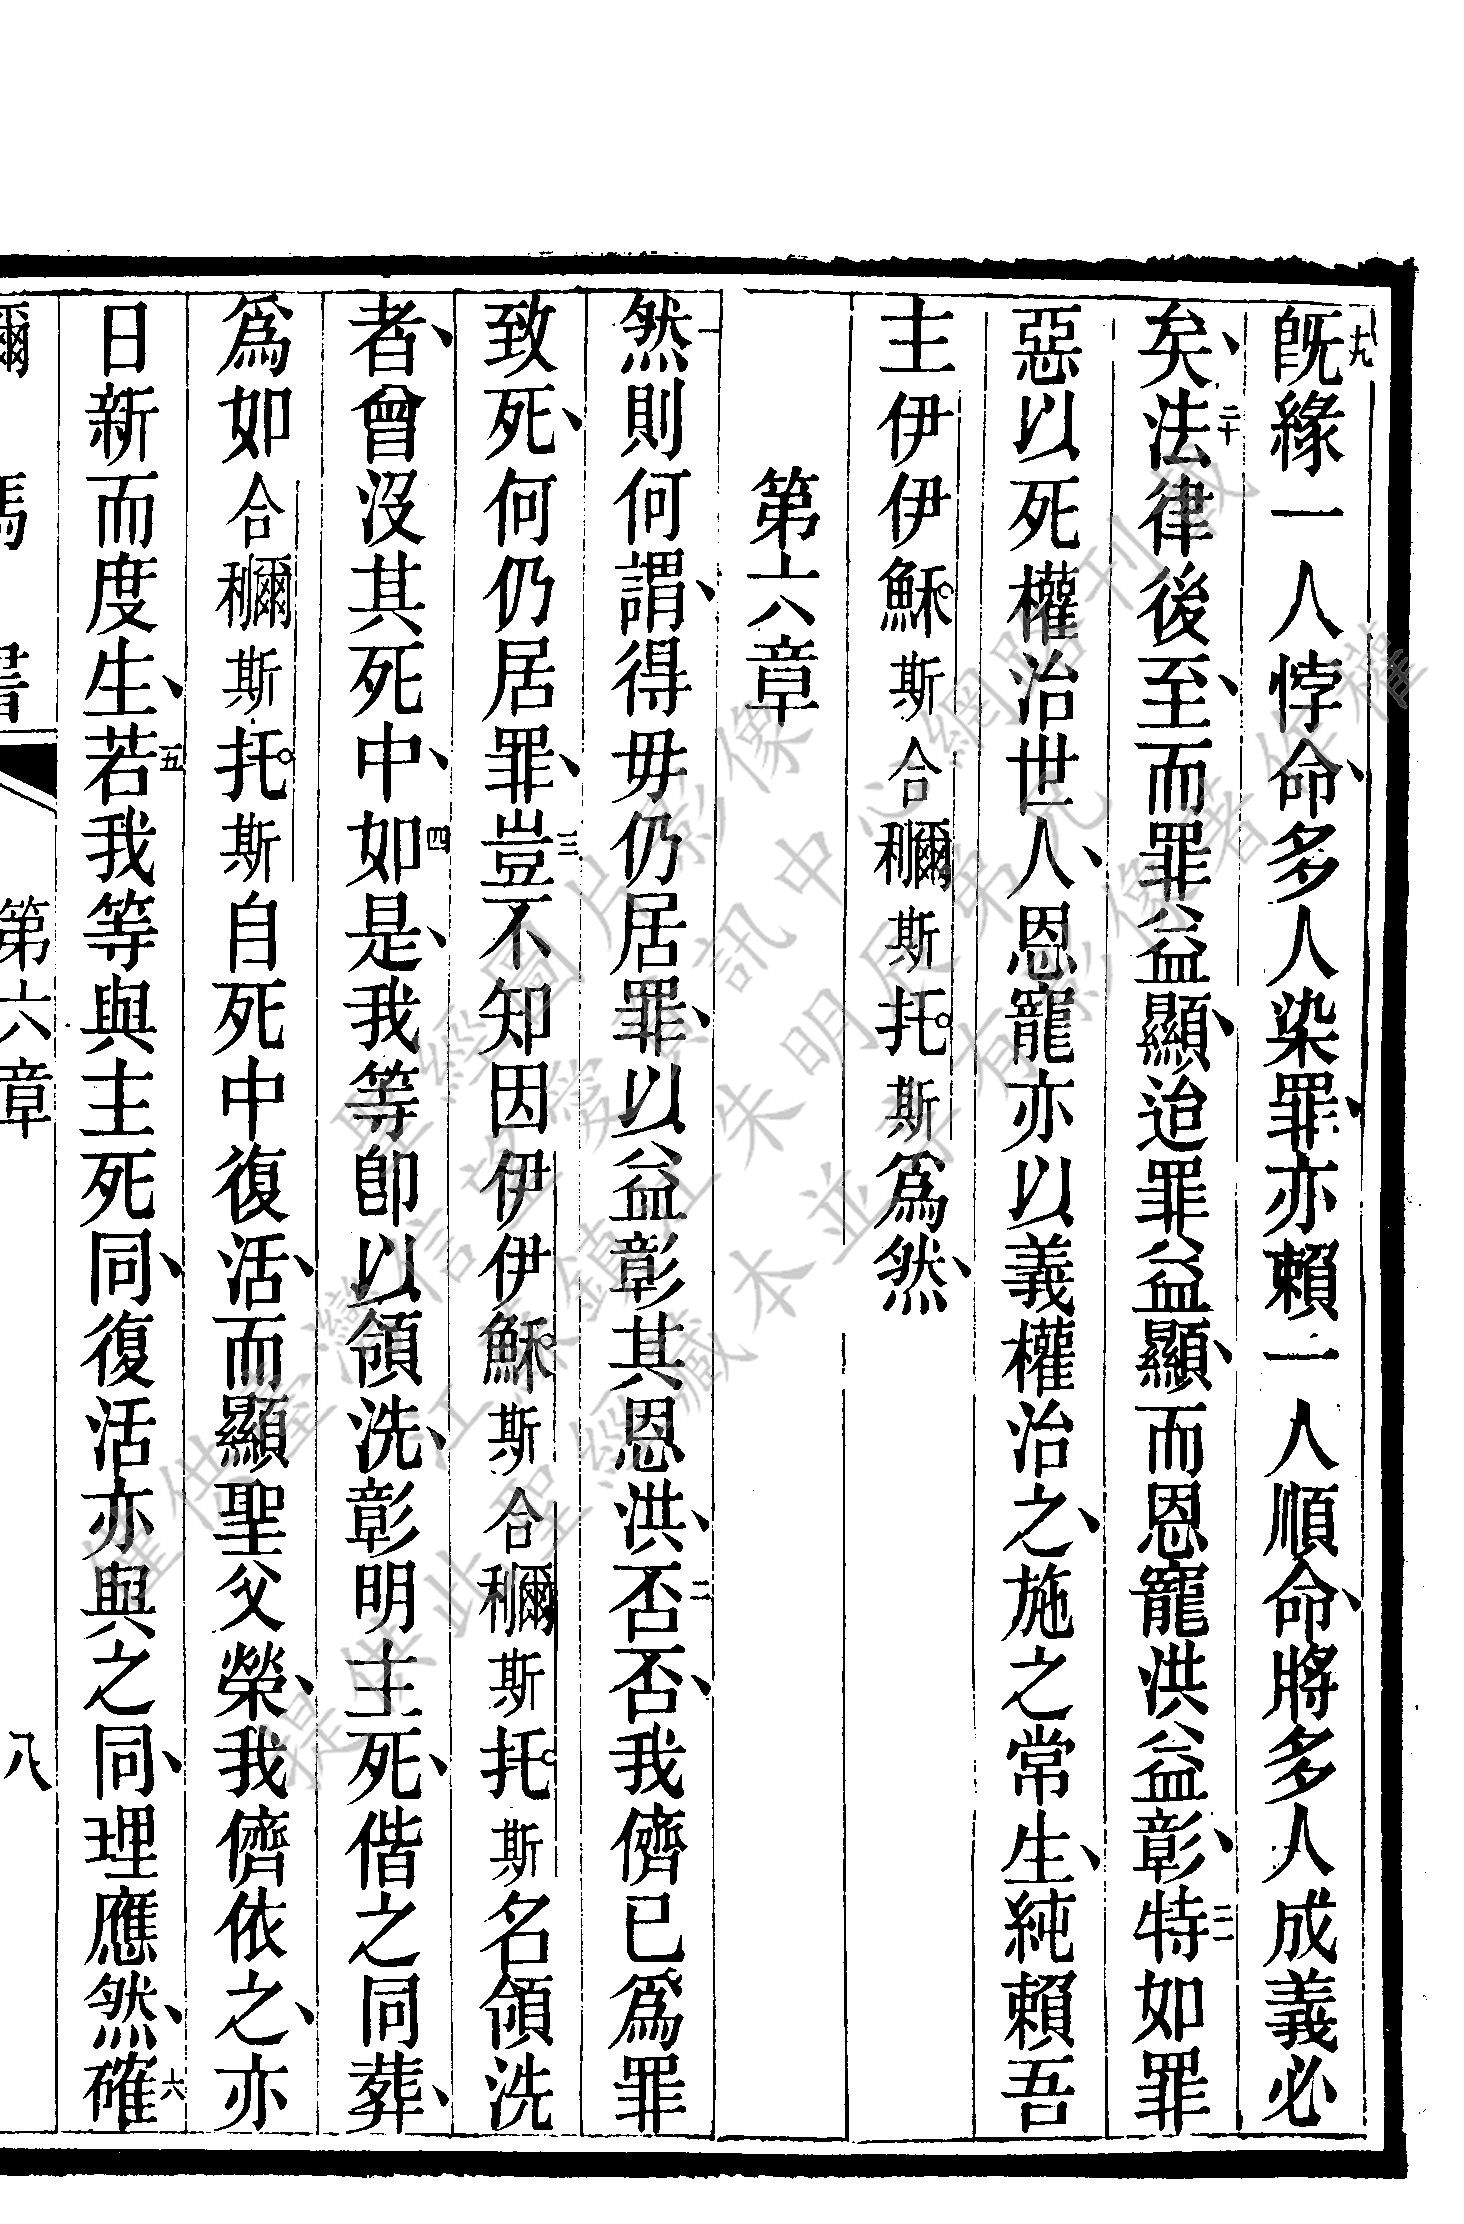 十九既緣一人悖命、多人染罪、亦賴一人順命、將多人成義必
矣、二十法律後至、而罪益顯、迨罪益顯、而恩寵洪益彰、二一特如罪
惡以死權治世人、恩寵亦以義權治之、施之常生、純賴吾
主伊伊穌。斯合穪斯托。斯爲然、
第六章
一然則何謂、得毋仍居罪、以益彰其恩洪、二否否、我儕已爲罪
致死、何仍居罪、三豈不知因伊伊穌。斯合穪斯托。斯名領洗
者、曾沒其死中、四如是、我等卽以領洗、彰明主死、偕之同葬、
爲如合穪斯托。斯自死中復活、而顯聖父榮、我儕依之、亦
日新而度生、五若我等與主死同、復活亦與之同、理應然、六確
第六章
八
僅供臺灣信望愛資訊中心網路刊載
提供此聖經藏本並享有影像著作權